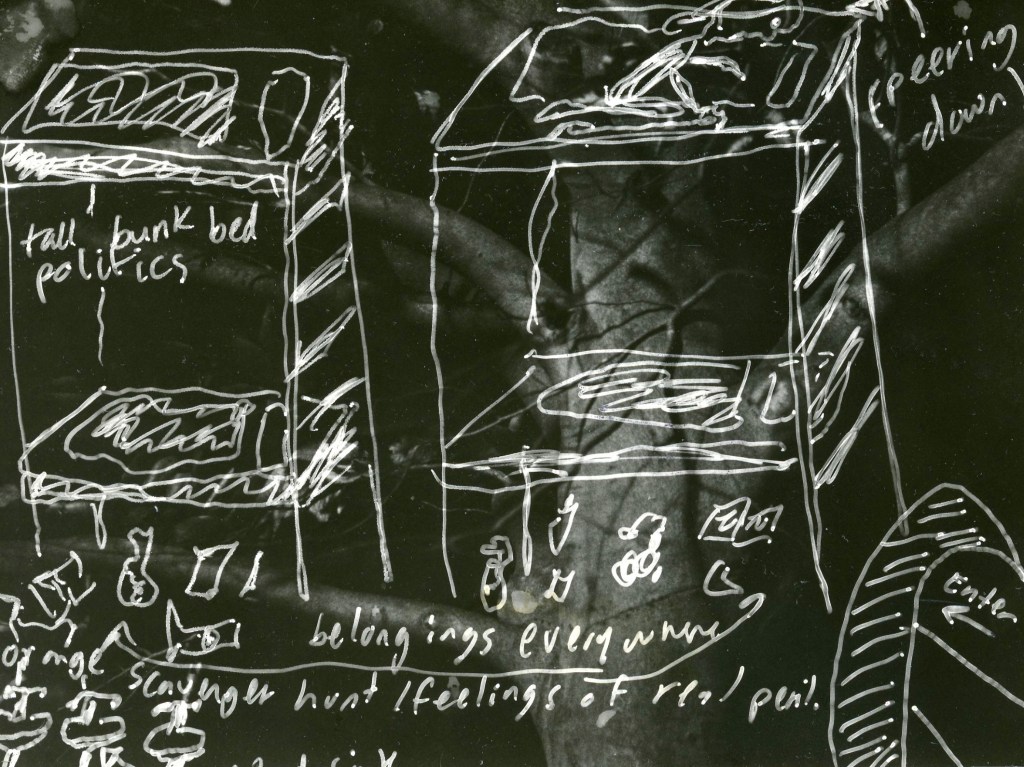 (peering
down
tall bunk bed
politics
Enter
belongings everywhere
orange
scavenger hunt/feelings of real peril.